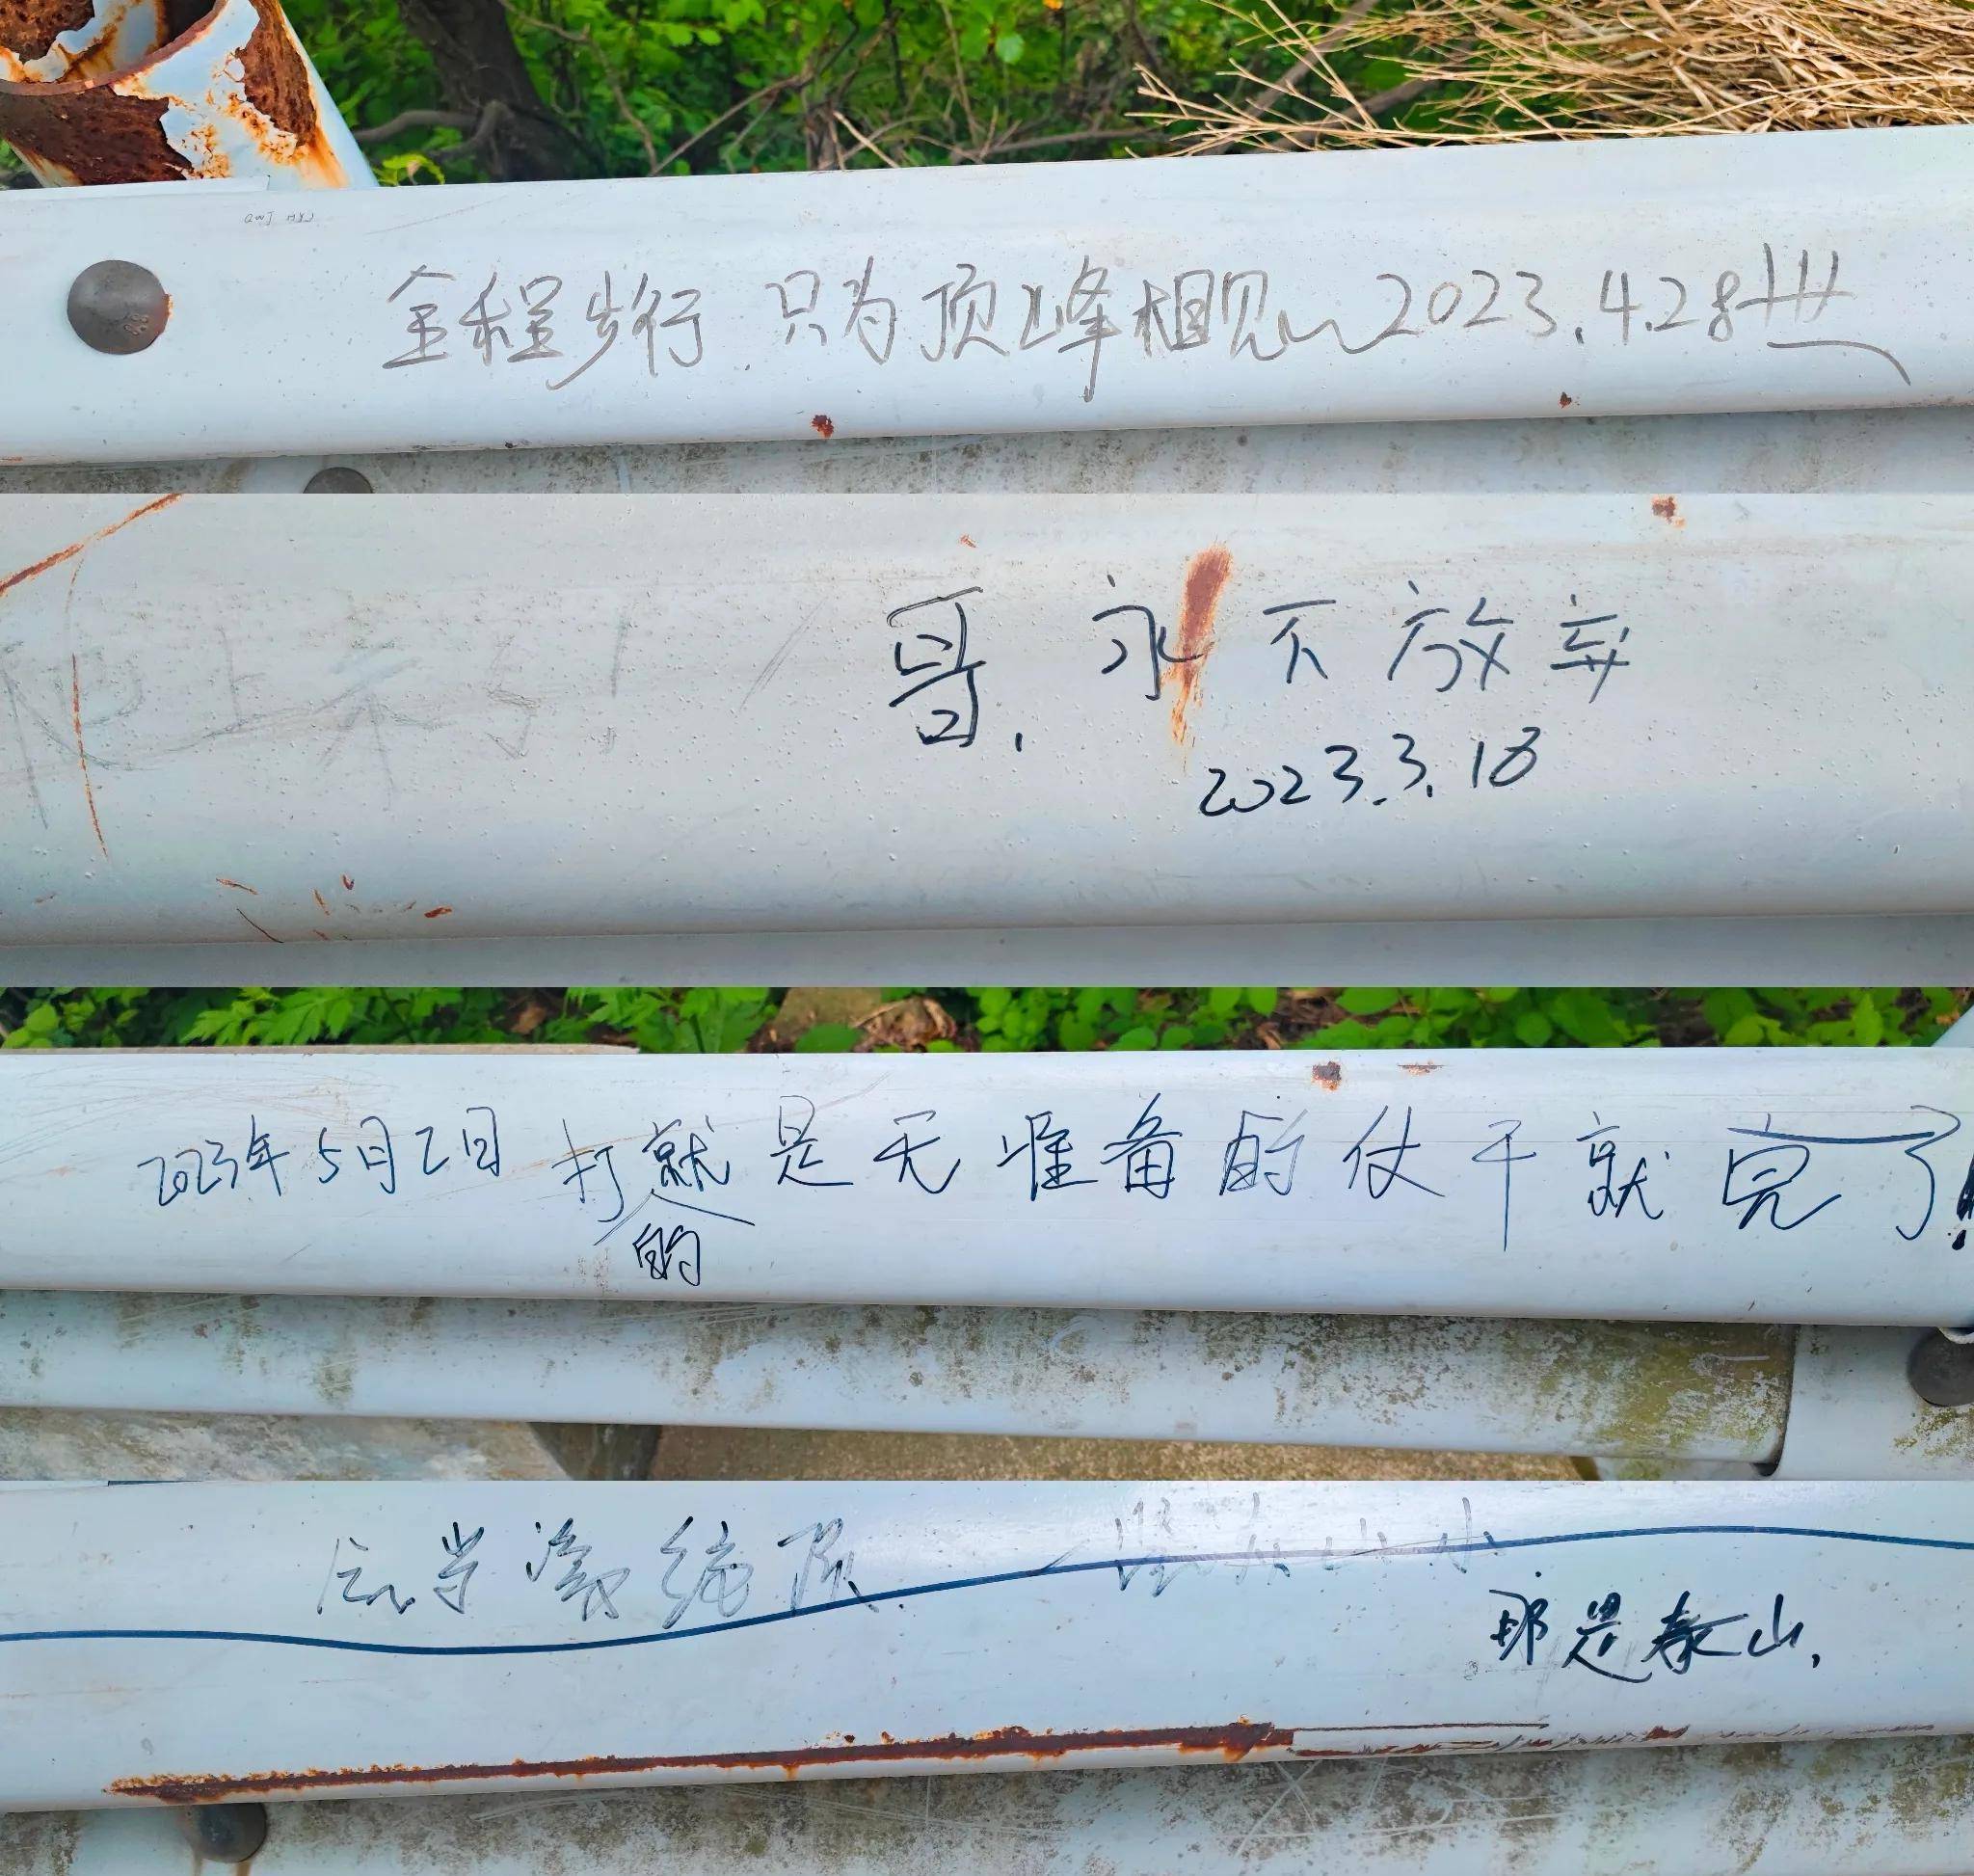 全程步行 只为顶峰相见~2023.4.28
哥,永不放弃
2023.3.18
2023年5月2日 打的就是无准备的仗 干就完了!
会当凌绝顶 一览众山小
那是泰山.